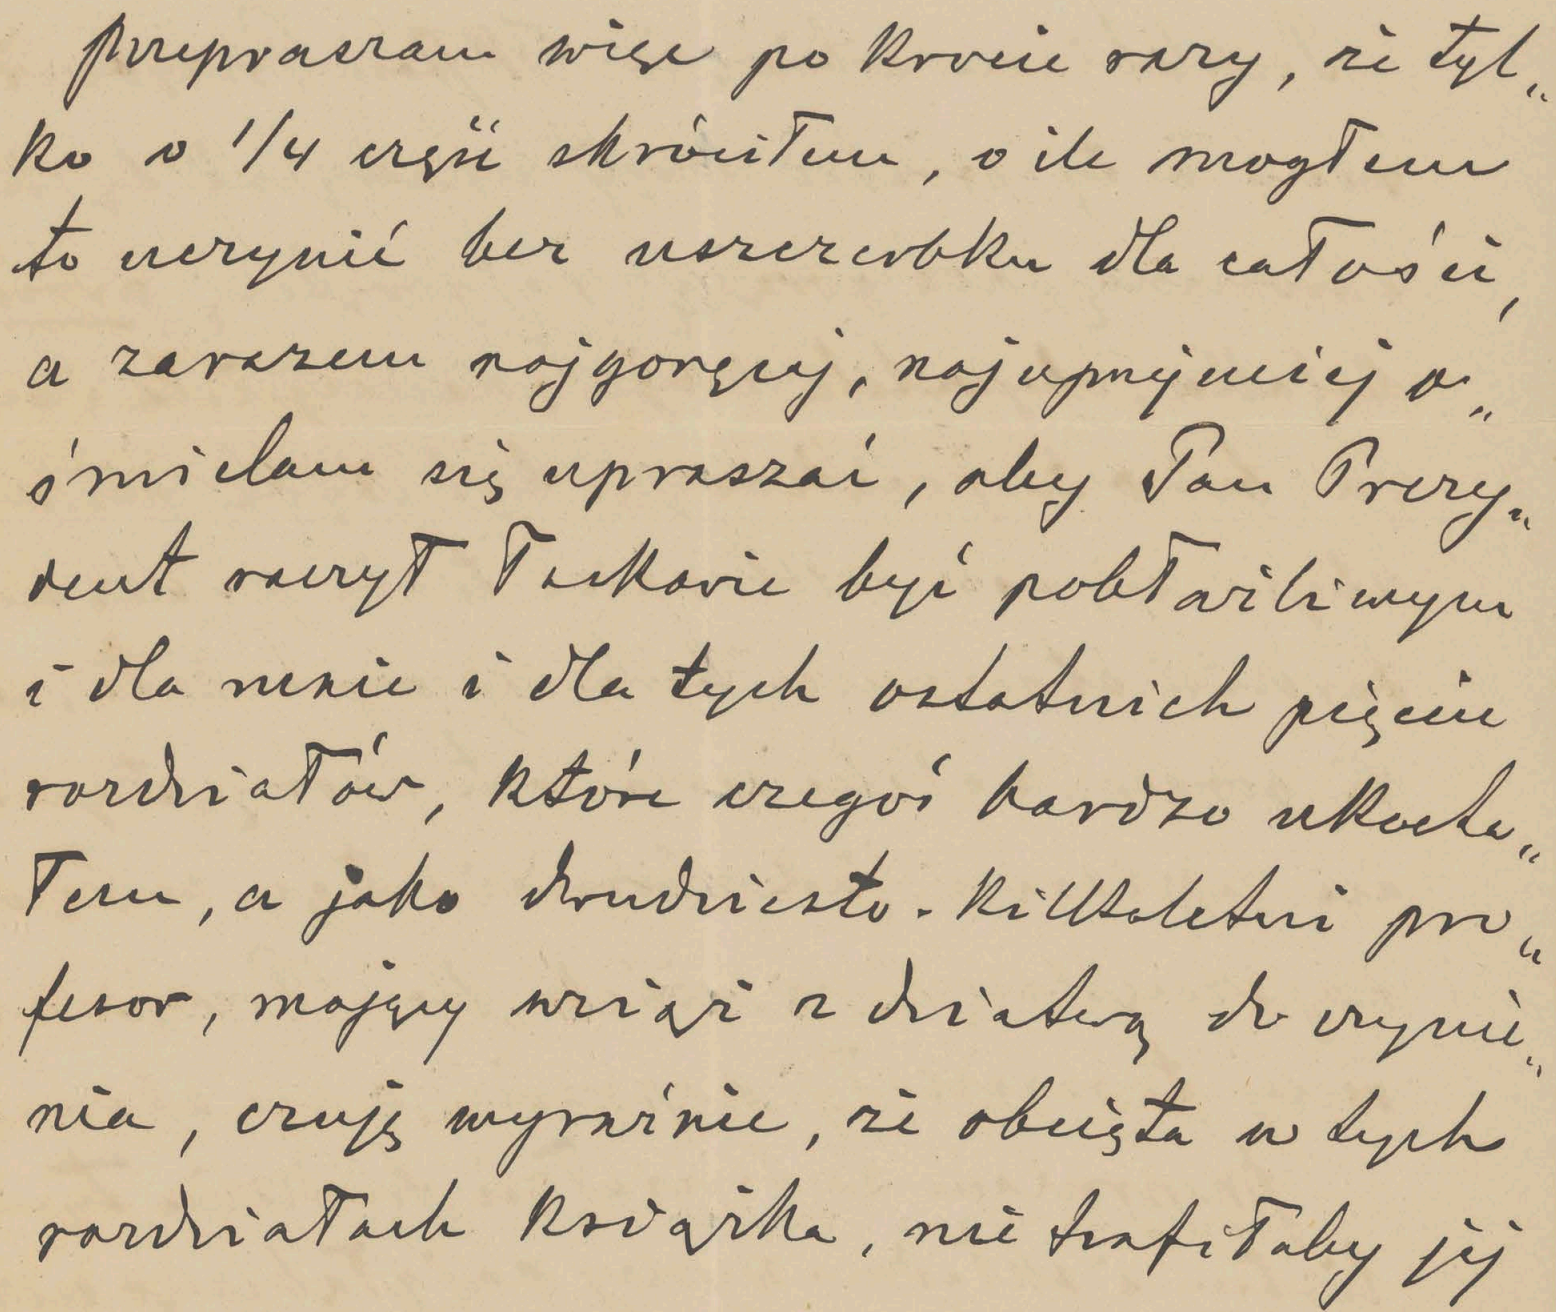 Przepraszam więc po kroćie razy, że tyl„
ko o 1/4 część skróciłem, o ile mogłem
to uczynić bez uszczerbku dla całości,
a zarazem najgoręcej, najuprzejmiej o„
śmielam się upraszać, aby Pan Prezy„
dent raczył łaskawie być pobłażliwym
i dla mnie i dla tych ostatnich pięciu
rozdziałów, które czegoś bardzo ukocha„
łem, a jako dwudziesto-kilkoletni pro„
fesor, mający wciąż z dziatwą do czynie„
nia, czuję wyraźnie, że obcięta w tych
rozdziałach książka, nie trafiłaby jej